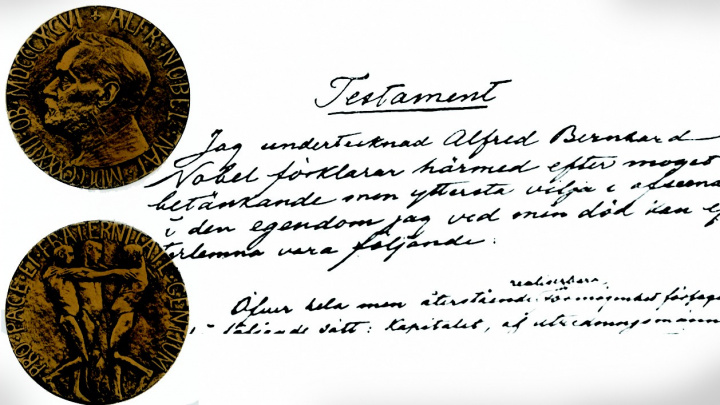 ALFR·NOBEL NAT MDCCCXXXIII OB MDCCCXCVI
PRO PACE ET FRATERNITATE GENTIUM
Testament
Jag undertecknad Alfred Bernhard
Nobel förklarar härmed efter moget
betänkande min yttersta vilja i afseende
i den egendom jag vid min död kan ef
terlemna vara följande:
realiserbara
Öfver hela min återstående förmögenhet förfoga
på följande sätt: Kapitalet, af utredningsmännen